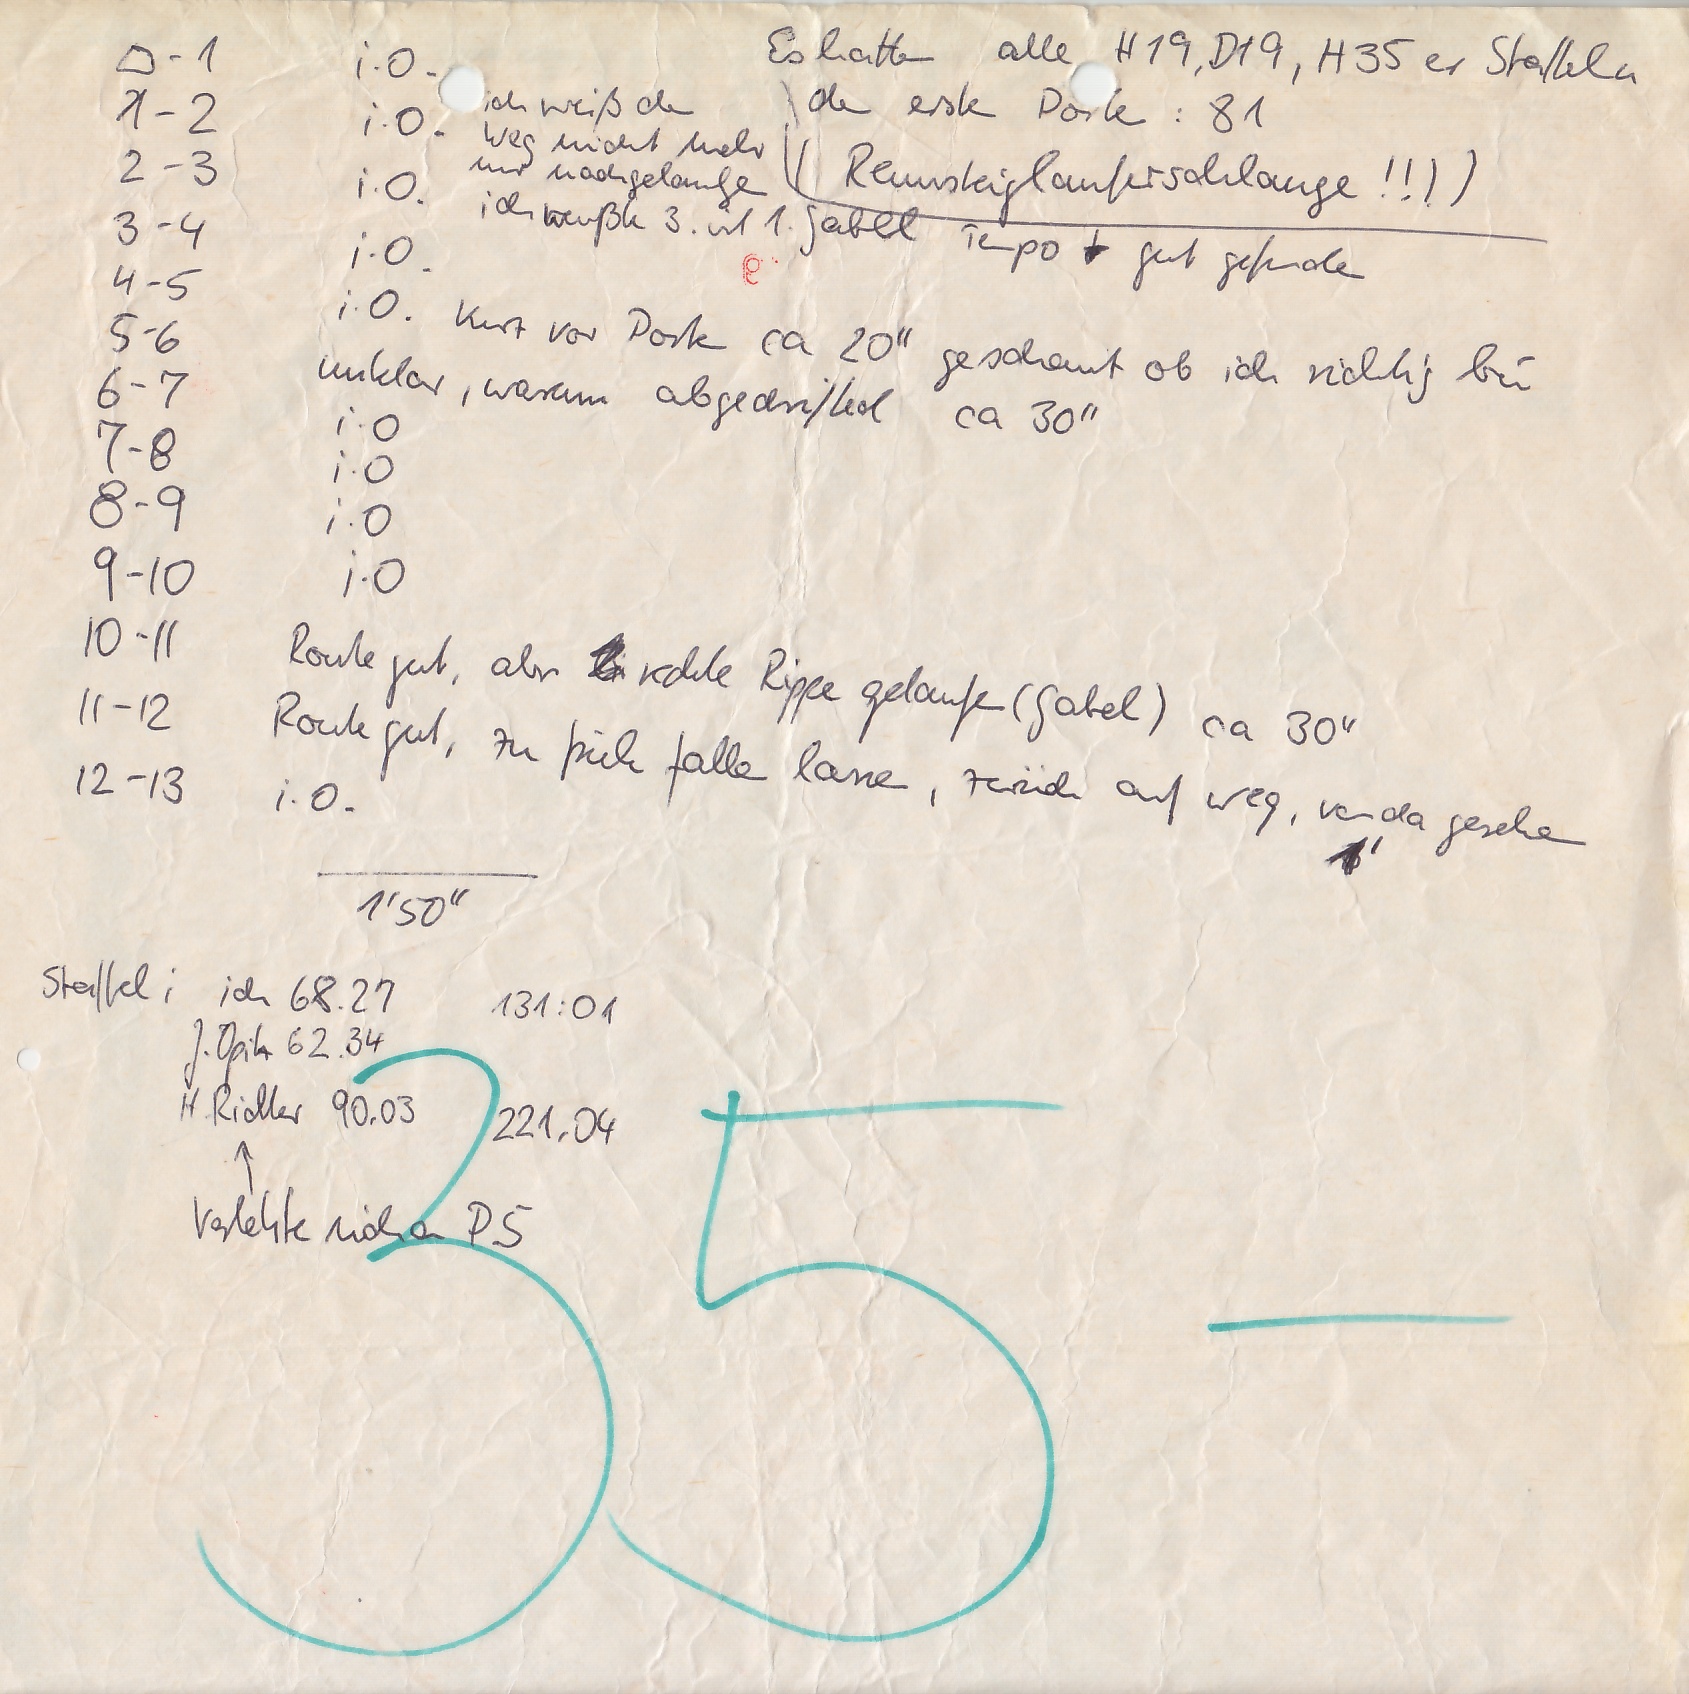 △-1 i.O. Es hatten alle H19, D19, H35 er Staffeln
1-2 i.O. ich weiß den den ersten Posten : 81
Weg nicht mehr
2-3 i.O. nur nachgelaufen (Rennsteiglauferschlange !!))
3-4 i.O. ich wußte 3. ist 1. Gabel Tempo gut gefunden
4-5 i.O. kurz vor Posten ca 20" geschaut ob ich richtig bin
5-6 unklar, warum abgedriftet ca 30"
6-7 i.O
7-8 i.O
8-9 i.O
9-10 i.O
10-11 Route gut, aber rechte Rippe gelaufen (Gabel) ca 30"
11-12 Route gut, zu früh fallen lassen, zurück auf Weg, von da gesehen
12-13 i.O. 1'
1'50"
Staffel: ich 68.27 131:01
J. Opitz 62.34
H. Richter 90.03 221.04
↑
Verletzte sich an P.5
35 —
9